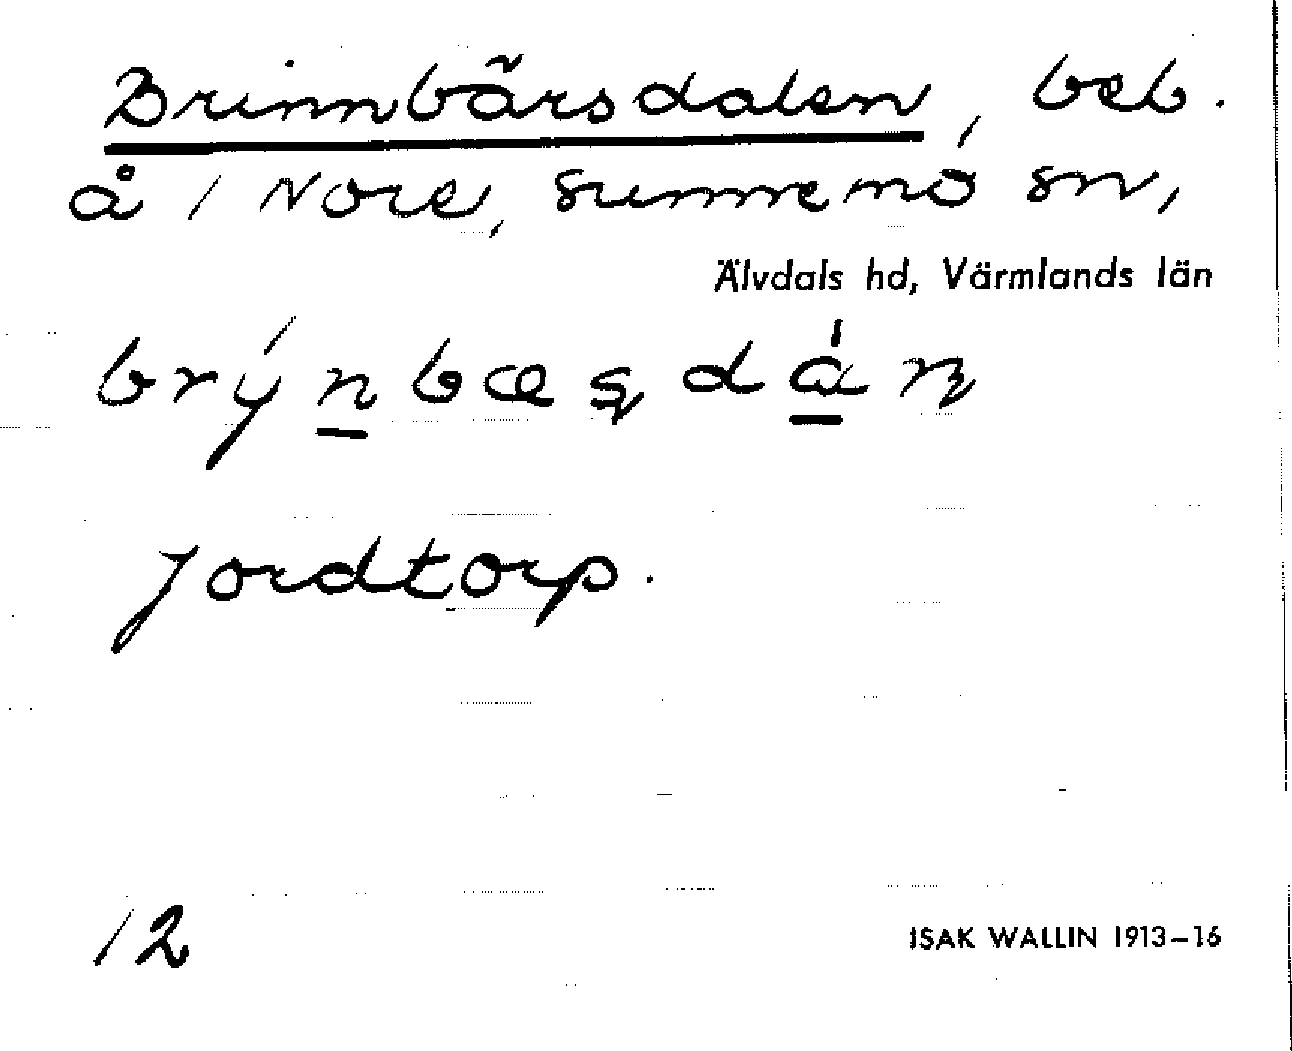 Brinnbärsdalen, beb.
å 1 Nore, Sunnemo sn,
Älvdals hd, Värmlands län
Jordtorp.
12
ISAK WALLIN 1913–16